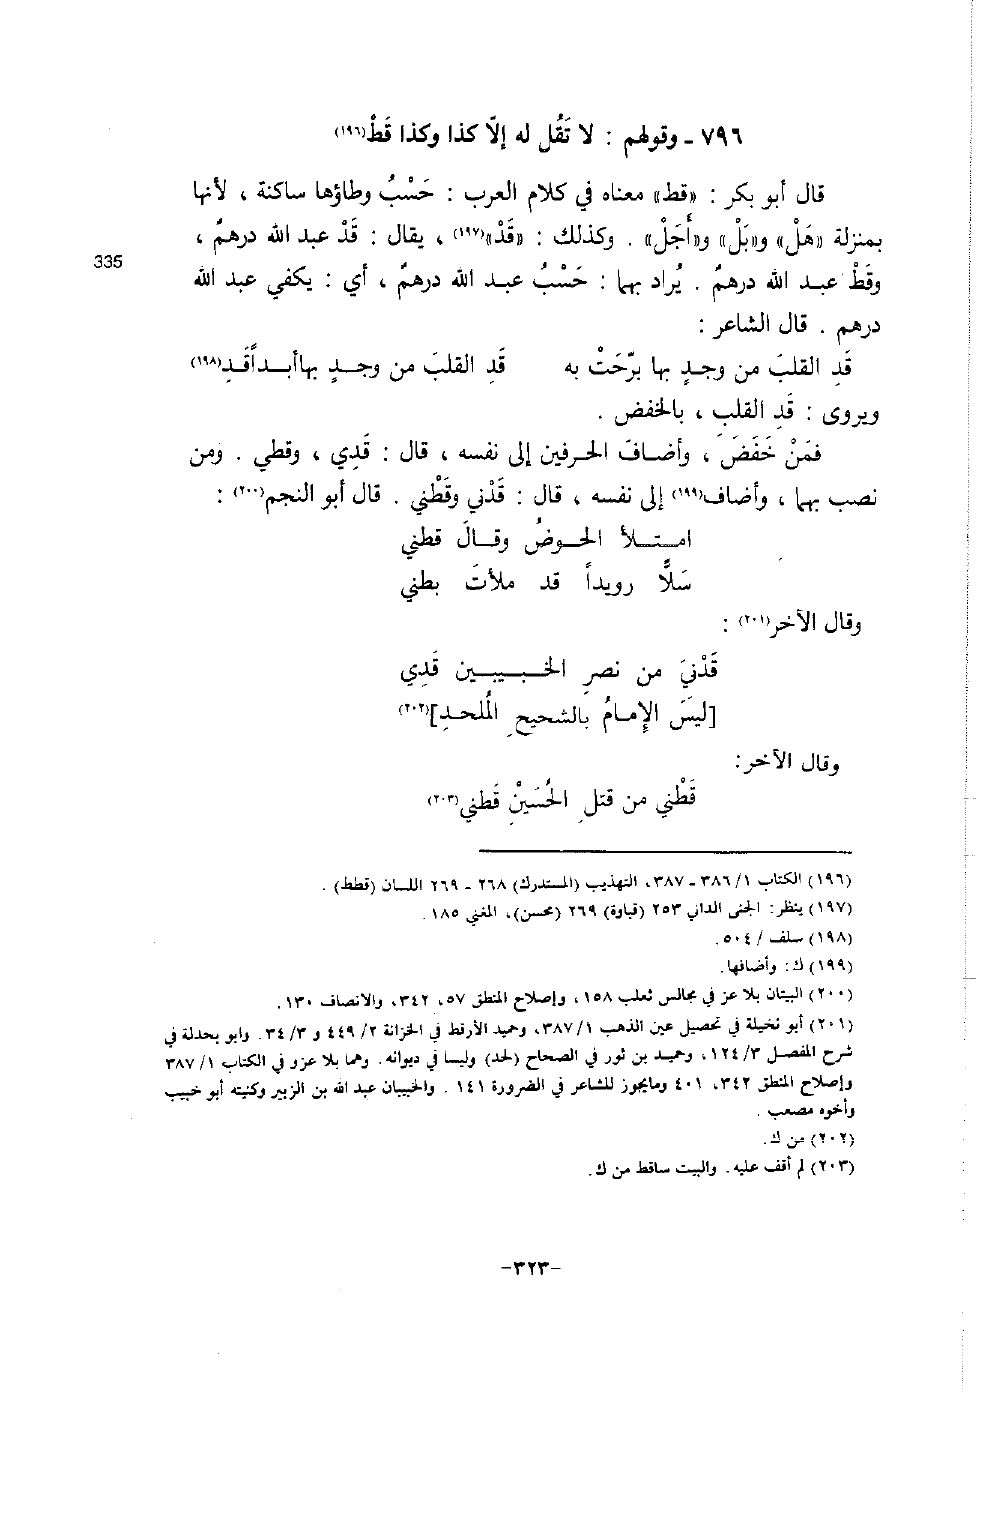 ٧٩٦ ـ وقولهم : لا تَقُل له إلاّ كذا وكذا قَطْ(١٩٦)
قال أبو بكر : «قط» معناه في كلام العرب : حَسْبُ وطاؤها ساكنة ، لأنها
بمنزلة «هَلْ» و«بَلْ» و«أَجَلْ» . وكذلك : «قَدْ»(١٩٧) ، يقال : قَدْ عبد الله درهمٌ ،
335
وقَطْ عبد الله درهمٌ . يُراد بها : حَسْبُ عبد الله درهمٌ ، أي : يكفي عبد الله
درهم . قال الشاعر :
قَدِ القلبَ من وجدٍ بها برَّحَتْ به قَدِ القلبَ من وجدٍ بها أبداً قَدِ(١٩٨)
ويروى : قَدِ القلب ، بالخفض .
فمَنْ خَفَضَ ، وأضافَ الحرفين إلى نفسه ، قال : قَدِي ، وقطي . ومن
نصب بها ، وأضاف(١٩٩) إلى نفسه ، قال : قَدْني وقَطْني . قال أبو النجم(٢٠٠) :
امتلأ الحوضُ وقالَ قطني
سَلاًّ رويداً قد ملأتَ بطني
وقال الآخر(٢٠١) :
قَدْنيَ من نصرِ الخبيبين قَدِي
[ليسَ الإِمامُ بالشحيحِ المُلحدِ](٢٠٢)
وقال الآخر:
قَطْني من قتلِ الحُسَيْنِ قَطني(٢٠٣)
(١٩٦) الكتاب ١/ ٣٨٦ ـ ٣٨٧، التهذيب (المستدرك) ٢٦٨ ـ ٢٦٩ اللسان (قطط) .
(١٩٧) ينظر: الجنى الداني ٢٥٣ (قباوة) ٢٦٩ (محسن)، المغني ١٨٥ .
(١٩٨) سلف / ٥٠٤.
(١٩٩) ك: وأضافها.
(٢٠٠) البيتان بلا عز في مجالس ثعلب ١٥٨ ، وإصلاح المنطق ٥٧، ٣٤٢، والانصاف ١٣٠.
(٢٠١) أبو نخيلة في تحصيل عين الذهب ١/ ٣٨٧، وحميد الأرقط في الخزانة ٢/ ٤٤٩ و ٣/ ٣٤. وابو بحدلة في
شرح المفصل ٣/ ١٢٤ ، وحميد بن ثور في الصحاح (لحد) وليسا في ديوانه. وهما بلا عزو في الكتاب ١/ ٣٨٧
وإصلاح المنطق ٣٤٢، ٤٠١ ومايجوز للشاعر في الضرورة ١٤١ . والخبيبان عبد الله بن الزبير وكنيته أبو خبيب
وأخوه مصعب .
(٢٠٢) من ك.
(٢٠٣) لم أقف عليه. والبيت ساقط من ك.
-٣٢٣-